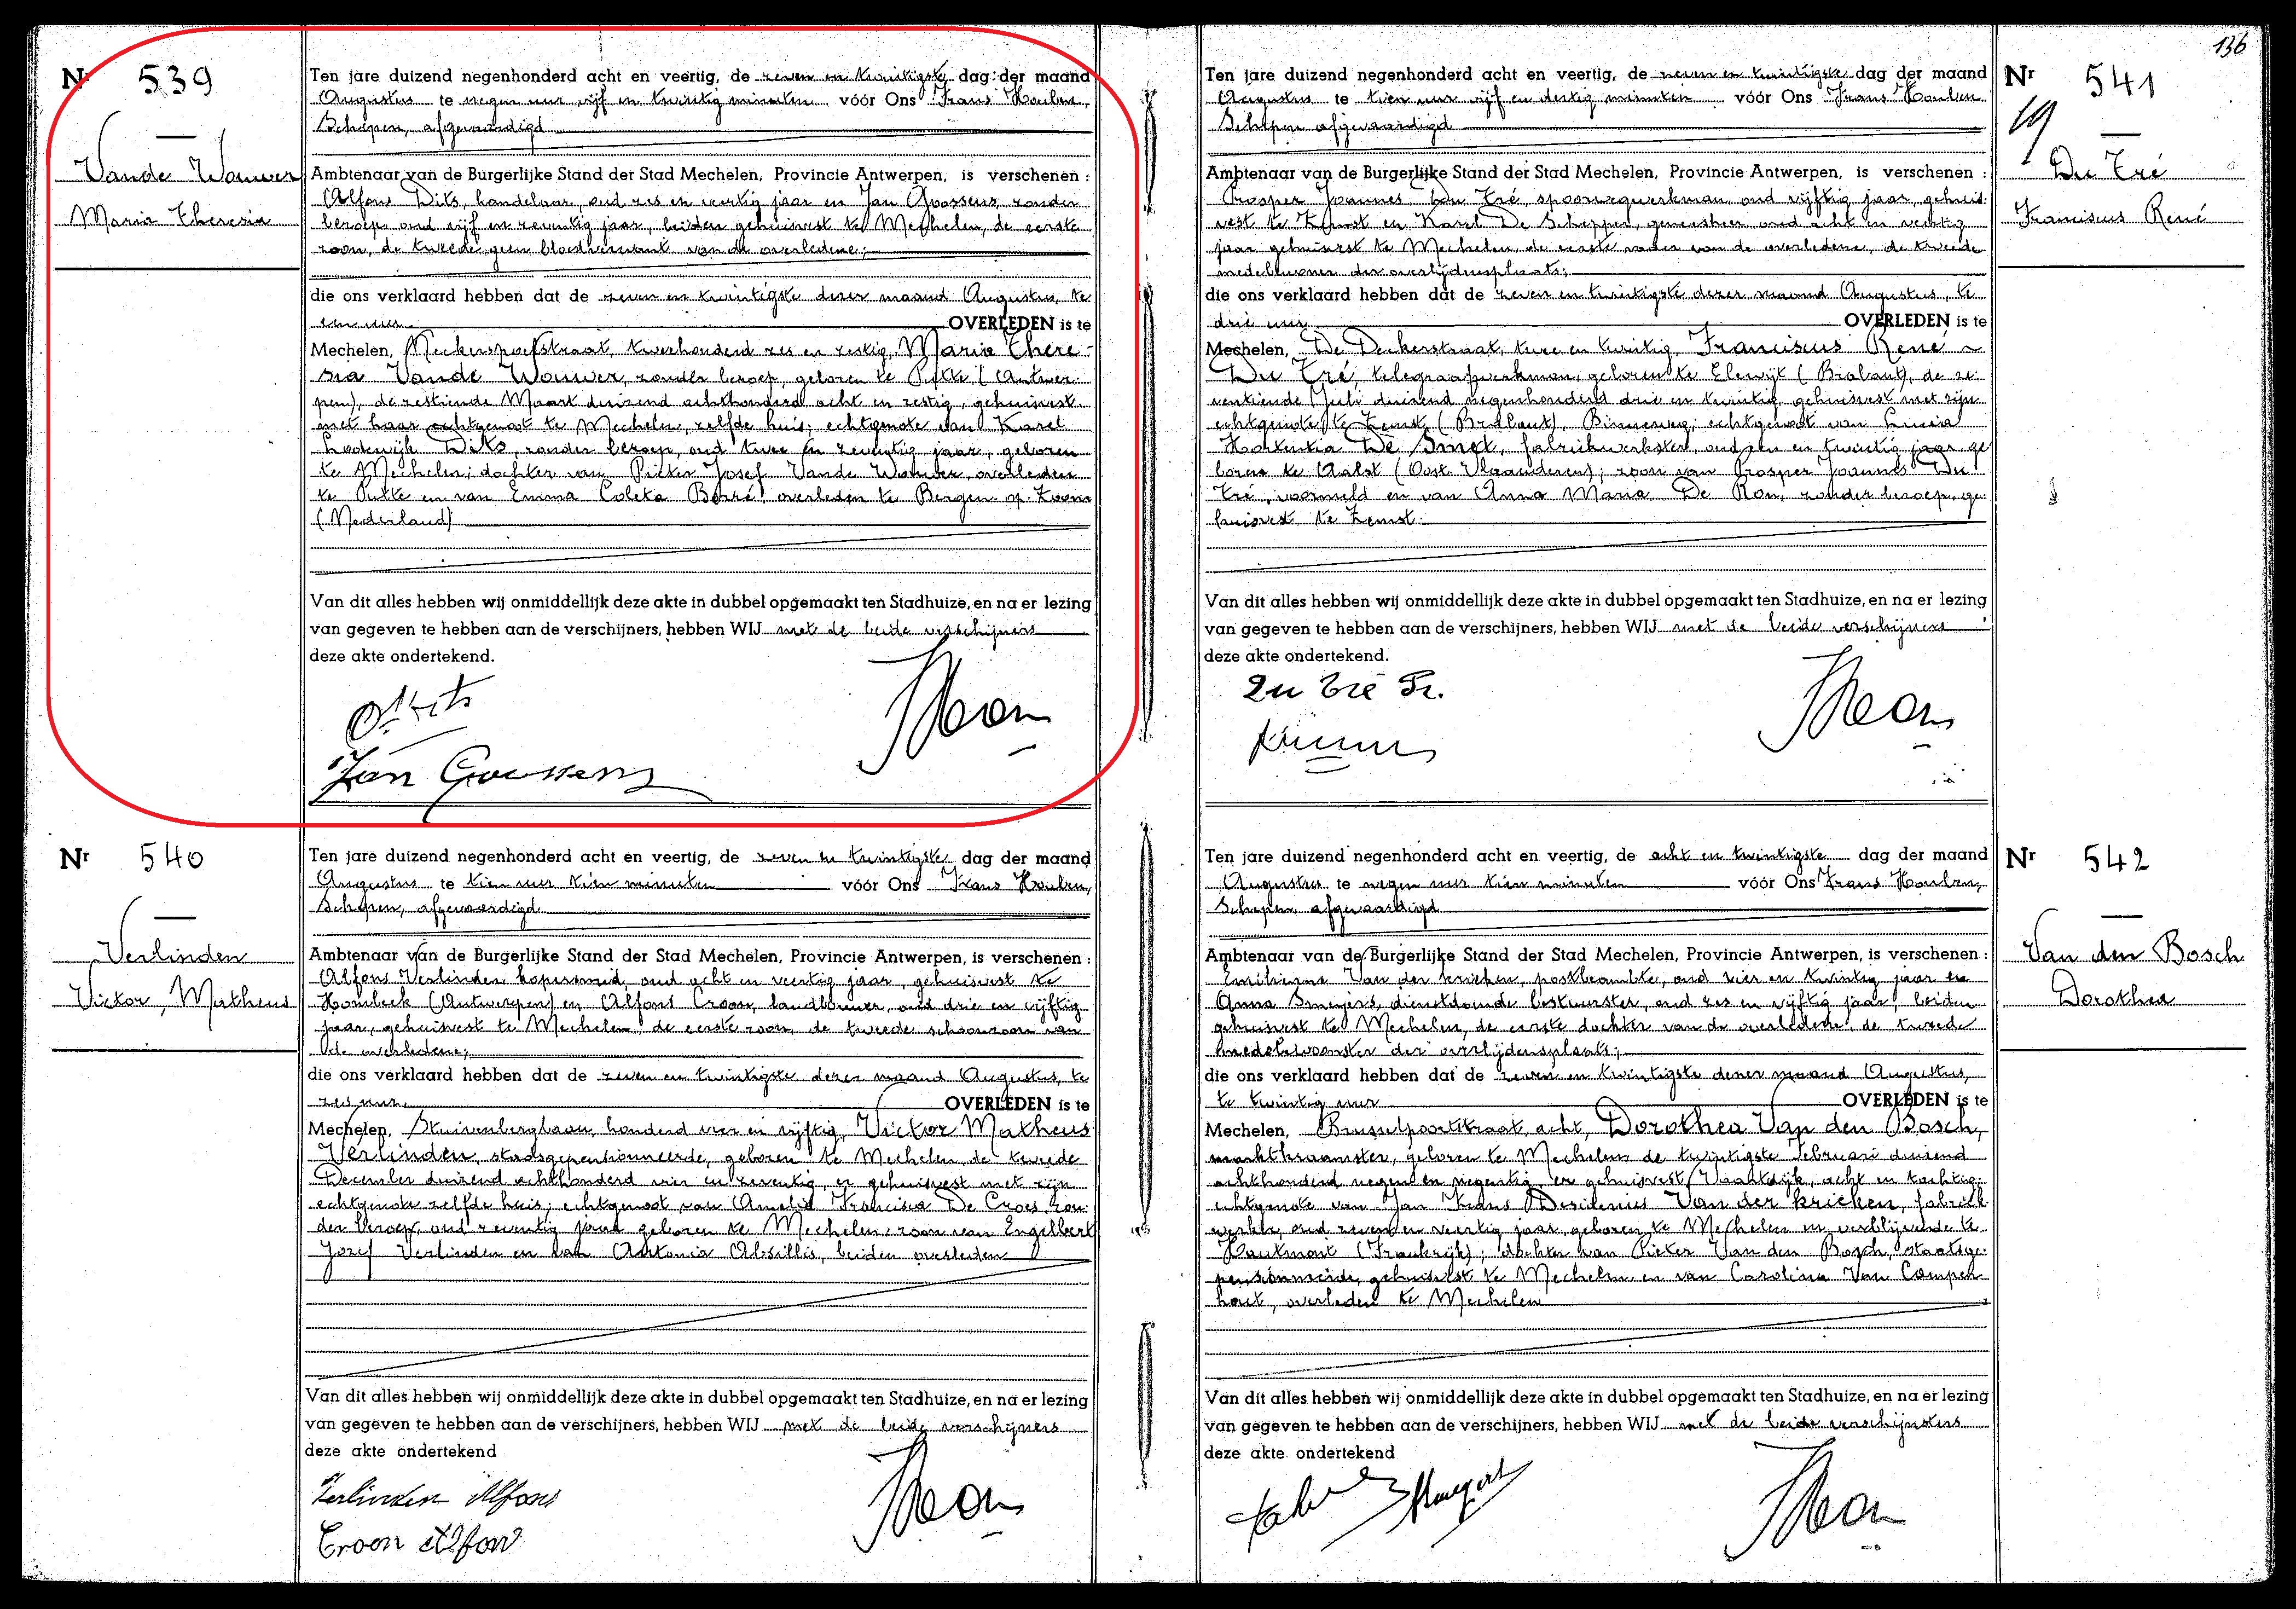 136
Nr 539
Vande Wouwer
Maria Theresia
Ten jare duizend negenhonderd acht en veertig, de zeven en twintigste dag der maand
Augustus te negen uur vijf en twintig minuten vóór Ons Frans Houben,
Schepen, afgevaardigd
Ambtenaar van de Burgerlijke Stand der Stad Mechelen, Provincie Antwerpen, is verschenen :
Alfons Dits, handelaar, oud zes en veertig jaar en Jan Goossens, zonder
beroep, oud vijf en zeventig jaar, beiden gehuisvest te Mechelen, de eerste
zoon, de tweede geen bloedverwant van de overledene;
die ons verklaard hebben dat de zeven en twintigste dezer maand Augustus, te
een uur OVERLEDEN is te
Mechelen, Nekkerspoelstraat, tweehonderd zes en zestig, Maria There-
sia Vande Wouwer, zonder beroep, geboren te Putte (Antwer-
pen), de zestiende Maart duizend achthonderd acht en zestig, gehuisvest
met haar echtgenoot te Mechelen, zelfde huis; echtgenote van Karel
Lodewijk Dits, zonder beroep, oud twee en zeventig jaar, geboren
te Mechelen; dochter van Pieter Josef Vande Wouwer overleden
te Putte en van Emma Coleta Borré overleden te Bergen-op-Zoom
(Nederland)
Van dit alles hebben wij onmiddellijk deze akte in dubbel opgemaakt ten Stadhuize, en na er lezing
van gegeven te hebben aan de verschijners, hebben WIJ met de beide verschijners
deze akte ondertekend.
Jan Goossens
Nr 540
Verlinden
Victor, Matheus
Ten jare duizend negenhonderd acht en veertig, de zeven en twintigste dag der maand
Augustus te tien uur tien minuten vóór Ons Frans Houben,
Schepen, afgevaardigd
Ambtenaar van de Burgerlijke Stand der Stad Mechelen, Provincie Antwerpen, is verschenen :
Alfons Verlinden kopersmid, oud acht en veertig jaar, gehuisvest te
Hombeek (Antwerpen) en Alfons Croon, landbouwer, oud drie en vijftig
jaar, gehuisvest te Mechelen de eerste zoon de tweede schoonzoon van
de overledene;
die ons verklaard hebben dat de zeven en twintigste dezer maand Augustus, te
zes uur OVERLEDEN is te
Mechelen, Stuivenbergbaan, honderd vier en vijftig, Victor Matheus
Verlinden, stadsgepensionneerde, geboren te Mechelen, de tweede
December duizend achthonderd vier en zeventig, er gehuisvest met zijn
echtgenote zelfde huis; echtgenoot van Amelia Francisca De Croes zon-
der beroep, oud zeventig jaar geboren te Mechelen; zoon van Engelbert
Jozef Verlinden en van Antonia Absillis, beiden overleden
Van dit alles hebben wij onmiddellijk deze akte in dubbel opgemaakt ten Stadhuize, en na er lezing
van gegeven te hebben aan de verschijners, hebben WIJ met de beide verschijners
deze akte ondertekend
Verlinden Alfons
Croon Alfons
Nr 541
Du Tré
Franciscus René
Ten jare duizend negenhonderd acht en veertig, de zeven en twintigste dag der maand
Augustus te tien uur vijf en dertig minuten vóór Ons Frans Houben
Schepen afgevaardigd
Ambtenaar van de Burgerlijke Stand der Stad Mechelen, Provincie Antwerpen, is verschenen :
Prosper Joannes Du Tré spoorwegwerkman, oud vijftig jaar, gehuis-
vest te Zemst en Karel De Schepper, geneesheer oud acht en veertig
jaar gehuisvest te Mechelen de eerste vader van de overledene, de tweede
medebewoner der overlijdensplaats;
die ons verklaard hebben dat de zeven en twintigste dezer maand Augustus, te
drie uur OVERLEDEN is te
Mechelen, De Deckerstraat, twee en twintig Franciscus René
Du Tré, telegraafwerkman, geboren te Elewijt (Brabant), de ze-
ventiende Juli duizend negenhonderd drie en twintig, gehuisvest met zijn
echtgenote te Zemst (Brabant), Binnenweg; echtgenoot van Lucia
Hortentia De Smet, fabriekwerkster, oud een en twintig jaar ge-
boren te Aalst (Oost Vlaanderen); zoon van Prosper Joannes Du
Tré, voormeld en van Anna Maria De Ron, zonder beroep, ge-
huisvest te Zemst.
Van dit alles hebben wij onmiddellijk deze akte in dubbel opgemaakt ten Stadhuize, en na er lezing
van gegeven te hebben aan de verschijners, hebben WIJ met de beide verschijners
deze akte ondertekend.
Du Tré Pr.
Nr 542
Van den Bosch
Dorothea
Ten jare duizend negenhonderd acht en veertig, de acht en twintigste dag der maand
Augustus te negen uur tien minuten vóór Ons Frans Houben,
Schepen, afgevaardigd
Ambtenaar van de Burgerlijke Stand der Stad Mechelen, Provincie Antwerpen, is verschenen :
Van der kricken, postbeambte, oud vier en twintig jaar en
Anna Smeyers, dienstdoende bestuurster, oud zes en vijftig jaar, beiden
gehuisvest te Mechelen, de eerste dochter van de overledene, de tweede
medebewoonster der overlijdensplaats;
die ons verklaard hebben dat de zeven en twintigste dezer maand Augustus,
te twintig uur OVERLEDEN is te
Mechelen, Brusselpoortstraat, acht, Dorothea Van den Bosch,
marktkraamster, geboren te Mechelen de twintigste Februari duizend
achthonderd negen en negentig, er gehuisvest, Vaartdijk, acht en tachtig;
echtgenote van Jan Frans Desiderius Van der kricken, fabriek-
werker, oud zeven en veertig jaar, geboren te Mechelen en verblijvende te
Hautmont (Frankrijk); dochter van Pieter Van den Bosch, staatsge-
pensionneerde, gehuisvest te Mechelen en van Carolina Van Campen-
hout, overleden te Mechelen
Van dit alles hebben wij onmiddellijk deze akte in dubbel opgemaakt ten Stadhuize, en na er lezing
van gegeven te hebben aan de verschijners, hebben WIJ met de beide verschijnsters
deze akte ondertekend